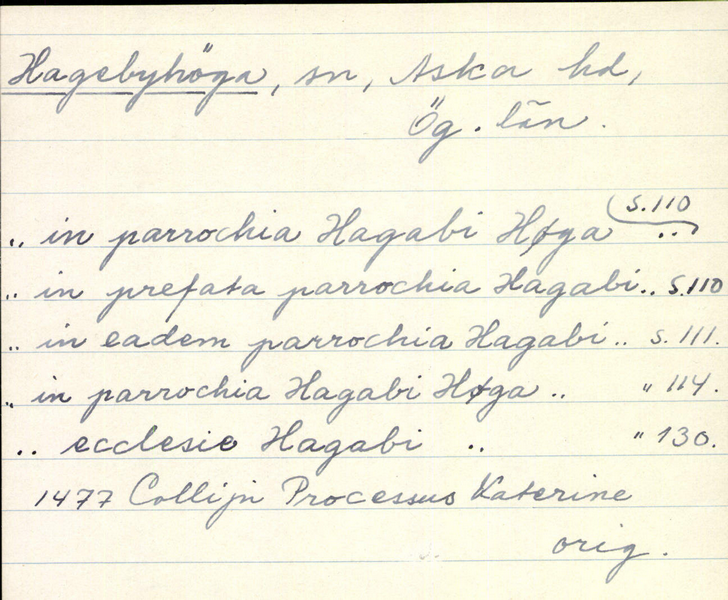 Hagebyhöga, sn, Aska hd,
Ög. län.
.. in parrochia Hagabi Høga .. s. 110
.. in prefata parrochia Hagabi .. s. 110
.. in eadem parrochia Hagabi .. s. 111.
.. in parrochia Hagabi Høga .. " 114.
.. ecclesie Hagabi .. " 130.
1477 Collijn Processus Katerine
orig.